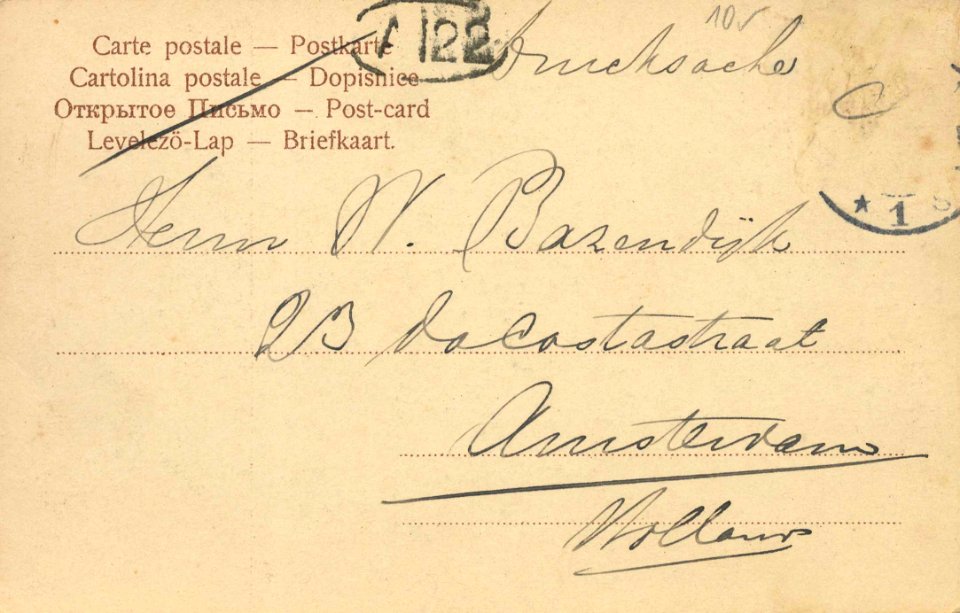 Carte postale — Postkarte
Cartolina postale — Dopisnice
Открытое Письмо — Post-card
Levelező-Lap — Briefkaart.
A 122
10
Drucksache
★ 1 S
Herrn W. Bazendijk
23 daCostastraat
Amsterdam
Holland